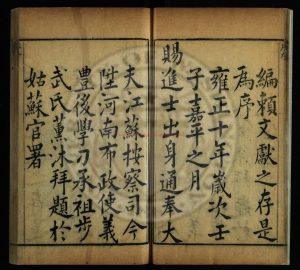 編頼文獻之存是
為序
雍正十年歲次壬
子嘉平之月
賜進士出身通奉大
夫江蘇按察司今
陞河南布政使義
豐後學刁承祖步
武氏薰沐拜題於
姑蘇官署